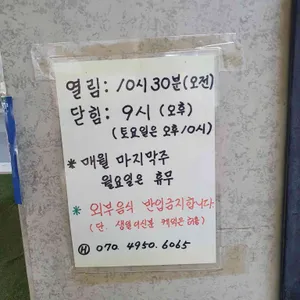 열림: 10시 30분(오전)
닫힘: 9시 (오후)
(토요일은 오후 10시)
* 매월 마지막주
월요일은 휴무
* 외부음식 반입금지합니다.
(단. 생일이신분 케익은
H 070. 4950. 6065